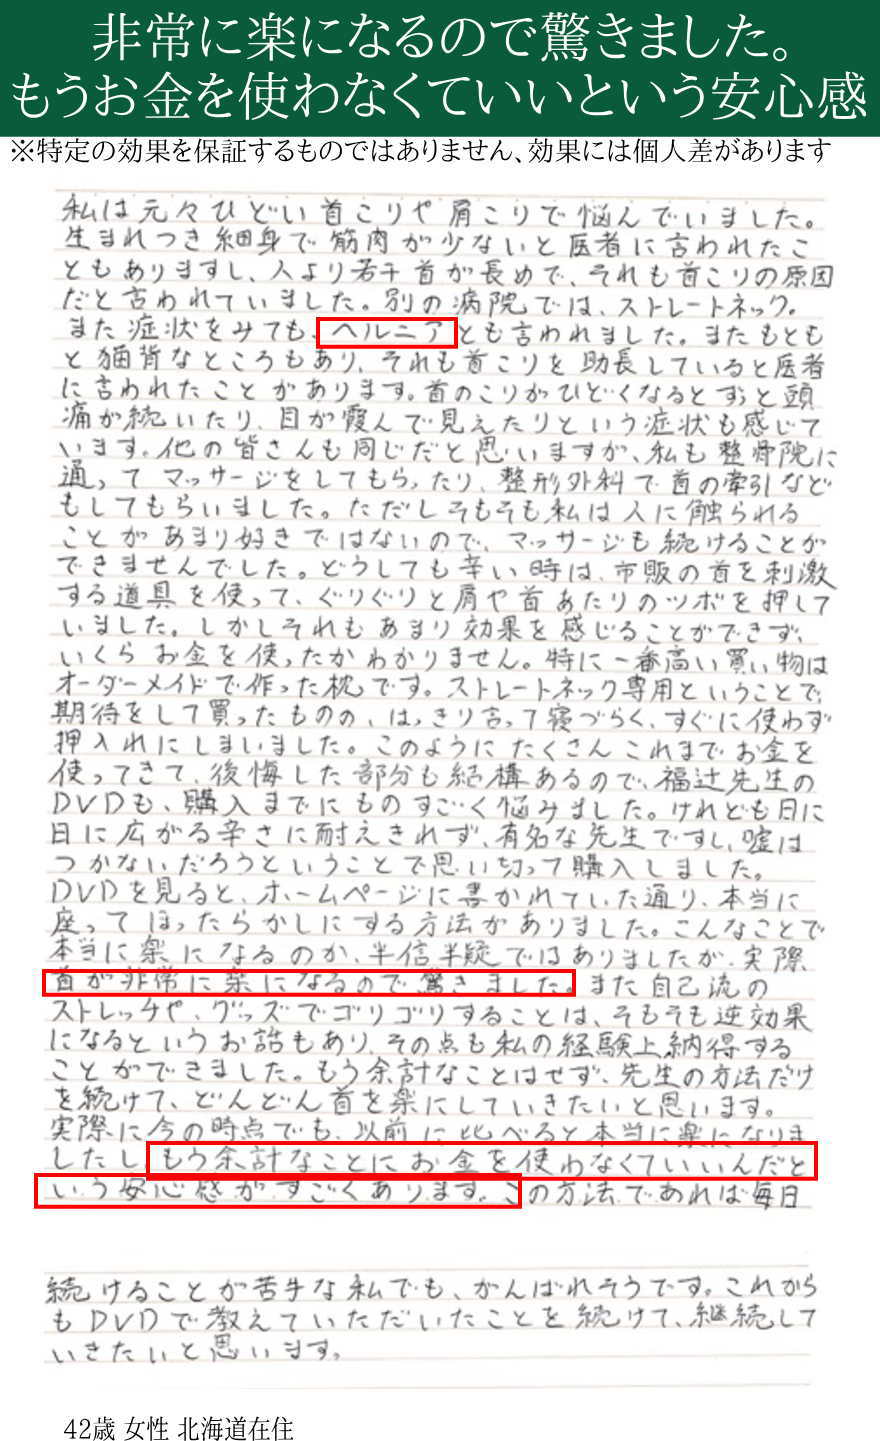 非常に楽になるので驚きました。
もうお金を使わなくていいという安心感
※特定の効果を保証するものではありません、効果には個人差があります
私は元々ひどい首こりや肩こりで悩んでいました。
生まれつき細身で筋肉が少ないと医者に言われたこ
ともありますし、人より若干首が長めで、それも首こりの原因
だと言われていました。別の病院では、ストレートネック。
また症状をみても、ヘルニアとも言われました。またもとも
と猫背なところもあり、それも首こりを助長していると医者
に言われたことがあります。首のこりがひどくなるとずっと頭
痛が続いたり、目が霞んで見えたりという症状も感じて
います。他の皆さんも同じだと思いますが、私も整骨院に
通ってマッサージをしてもらったり、整形外科で首の牽引など
もしてもらいました。ただしそもそも私は人に触られる
ことがあまり好きではないので、マッサージも続けることが
できませんでした。どうしても辛い時は、市販の首を刺激
する道具を使って、ぐりぐりと肩や首あたりのツボを押して
いました。しかしそれもあまり効果を感じることができず、
いくらお金を使ったかわかりません。特に一番高い買い物は
オーダーメイドで作った枕です。ストレートネック専用ということで、
期待をして買ったものの、はっきり言って寝づらく、すぐに使わず
押入れにしまいました。このようにたくさんこれまでお金を
使ってきて、後悔した部分も結構あるので、福辻先生の
DVDも、購入までにものすごく悩みました。けれども日に
日に広がる辛さに耐えきれず、有名な先生ですし、嘘は
つかないだろうということで思い切って購入しました。
DVDを見ると、ホームページに書かれていた通り、本当に
座ってほったらかしにする方法がありました。こんなことで
本当に楽になるのか、半信半疑ではありましたが、実際
首が非常に楽になるので驚きました。また自己流の
ストレッチや、グッズでゴリゴリすることは、そもそも逆効果
になるというお話もあり、その点も私の経験上納得する
ことができました。もう余計なことはせず、先生の方法だけ
を続けて、どんどん首を楽にしていきたいと思います。
実際に今の時点でも、以前に比べると本当に楽になりま
したし、もう余計なことにお金を使わなくていいんだと
いう安心感がすごくあります。この方法であれば毎日
続けることが苦手な私でも、がんばれそうです。これから
もDVDで教えていただいたことを続けて、継続して
いきたいと思います。
42歳 女性 北海道在住